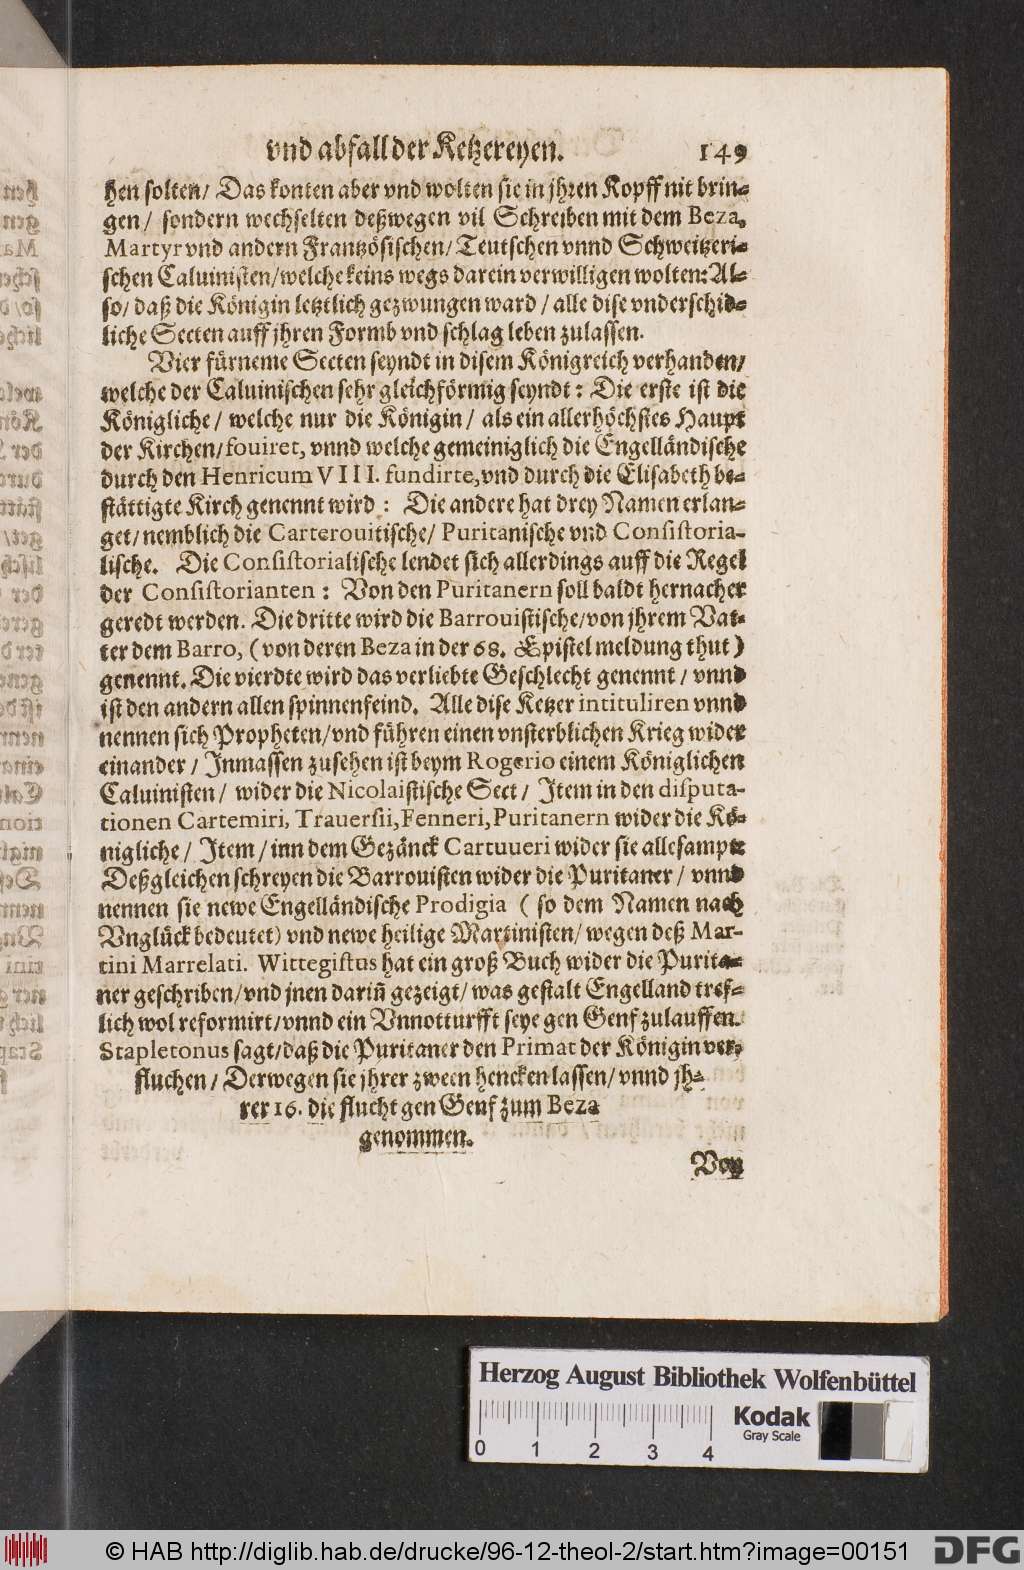 vnd abfall der Ketzereyen. 149
hen solten/ Das konten aber vnd wolten sie in jhren Kopff nit brin-
gen/ sondern wechselten deßwegen vil Schreiben mit dem Beza,
Martyr vnd andern Frantzösischen/ Teutschen vnnd Schweitzeri-
schen Caluinisten/ welche keins wegs darein verwilligen wolten: Al-
so/ daß die Königin letztlich gezwungen ward/ alle dise vnderschid-
liche Secten auff jhren Formb vnd schlag leben zulassen.
Vier fürneme Secten seyndt in disem Königreich verhanden/
welche der Caluinischen sehr gleichförmig seyndt: Die erste ist die
Königliche/ welche nur die Königin/ als ein allerhöchstes Haupt
der Kirchen/ fouiret, vnnd welche gemeiniglich die Engelländische
durch den Henricum VIII. fundirte, vnd durch die Elisabeth be-
stättigte Kirch genennt wird: Die andere hat drey Namen erlan-
get/ nemblich die Carterouitische/ Puritanische vnd Consistoria-
lische. Die Consistorialische lendet sich allerdings auff die Regel
der Consistorianten: Von den Puritanern soll baldt hernacher
geredt werden. Die dritte wird die Barrouistische/ von jhrem Vat-
ter dem Barro, (von deren Beza in der 68. Epistel meldung thut)
genennt. Die vierdte wird das verliebte Geschlecht genennt/ vnnd
ist den andern allen spinnenfeind. Alle dise Ketzer intituliren vnnd
nennen sich Propheten/ vnd führen einen vnsterblichen Krieg wider
einander/ Inmassen zusehen ist beym Rogerio einem Königlichen
Caluinisten/ wider die Nicolaistische Sect/ Item in den disputa-
tionen Cartemiri, Trauersii, Fenneri, Puritanern wider die Kö-
nigliche/ Item/ inn dem Gezänck Cartuueri wider sie allesampt:
Deßgleichen schreyen die Barrouisten wider die Puritaner/ vnnd
nennen sie newe Engelländische Prodigia (so dem Namen nach
Vnglück bedeutet) vnd newe heilige Martinisten/ wegen deß Mar-
tini Marrelati. Wittegistus hat ein groß Buch wider die Purita-
ner geschriben/ vnd jnen dariñ gezeigt/ was gestalt Engelland tref-
lich wol reformirt/ vnnd ein Vnnotturfft seye gen Genf zulauffen.
Stapletonus sagt/ daß die Puritaner den Primat der Königin ver-
fluchen/ Derwegen sie jhrer zween hencken lassen/ vnnd jh-
rer 16. die flucht gen Genf zum Beza
genommen.
Von
Herzog August Bibliothek Wolfenbüttel
Kodak
Gray Scale
0 1 2 3 4
© HAB http://diglib.hab.de/drucke/96-12-theol-2/start.htm?image=00151
DFG